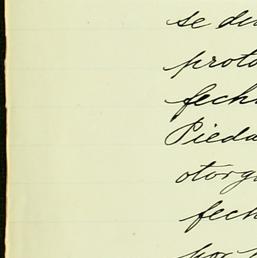 se du
proto
fech
Pieda
otorg
fech
por